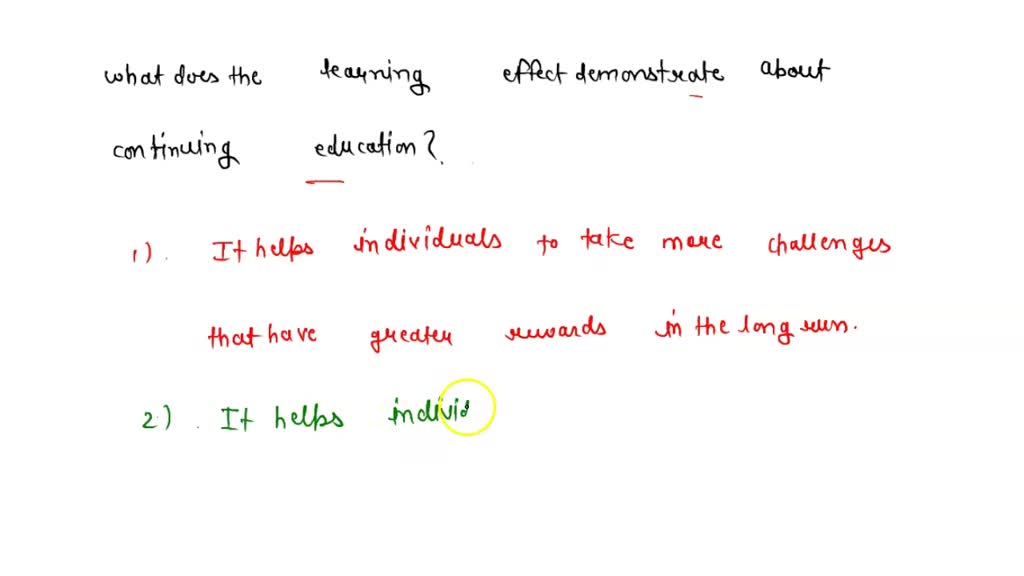 what does the learning effect demonstrate about
continuing education?
1). It helps individuals to take more challenges
that have greater rewards in the long run.
2). It helps individ